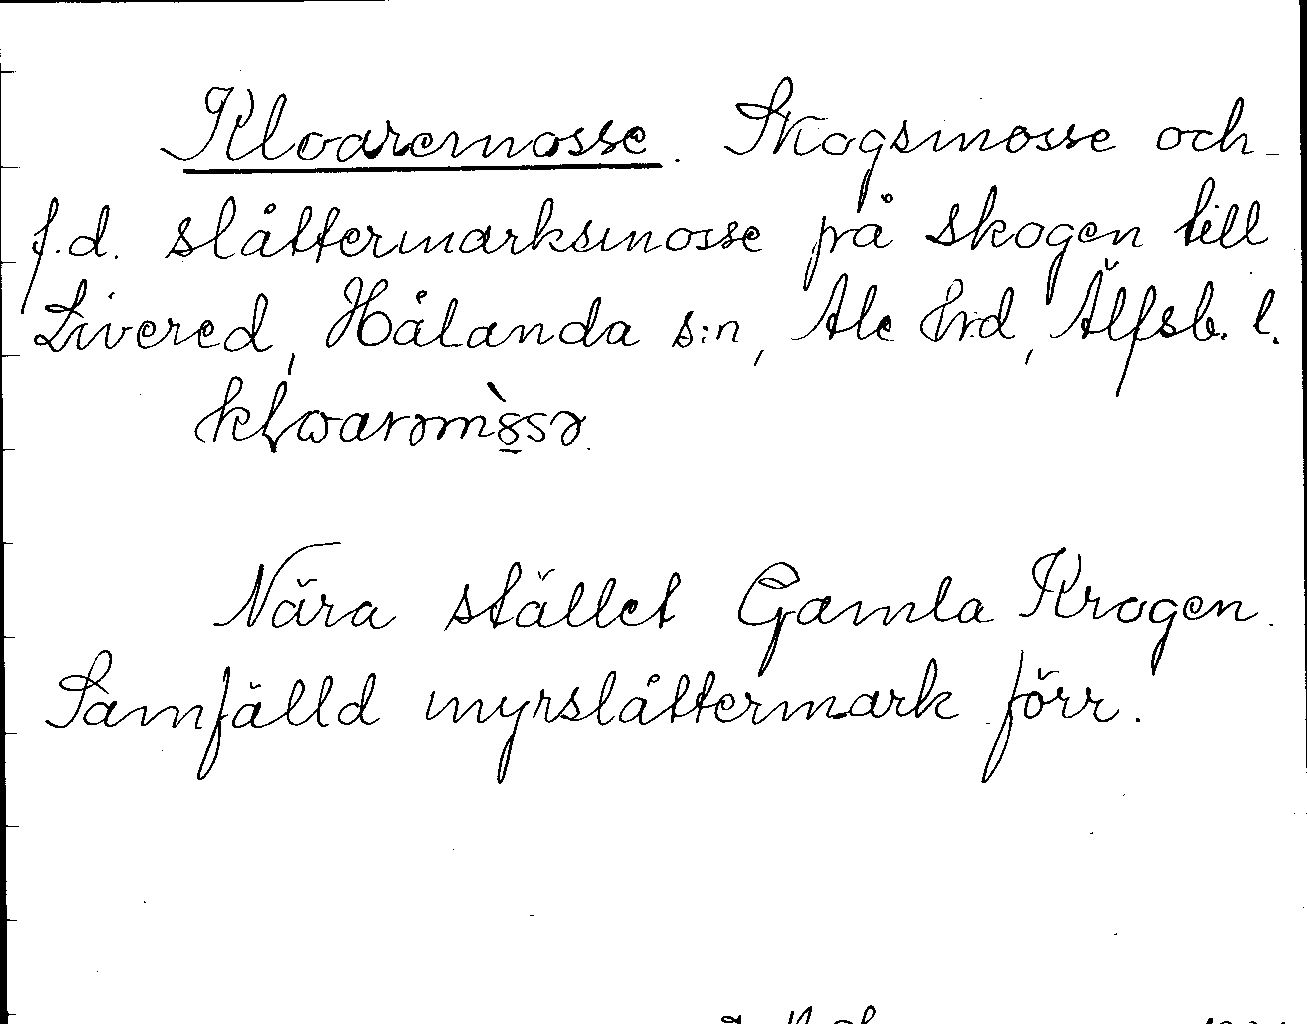 Kloaremosse. Skogsmosse och
f.d. slåttermarksmosse på skogen till
Livered, Hålanda s:n, Ale hrd, Älfsb. l.
Nära stället Gamla Krogen.
Samfälld myrslåttermark förr.